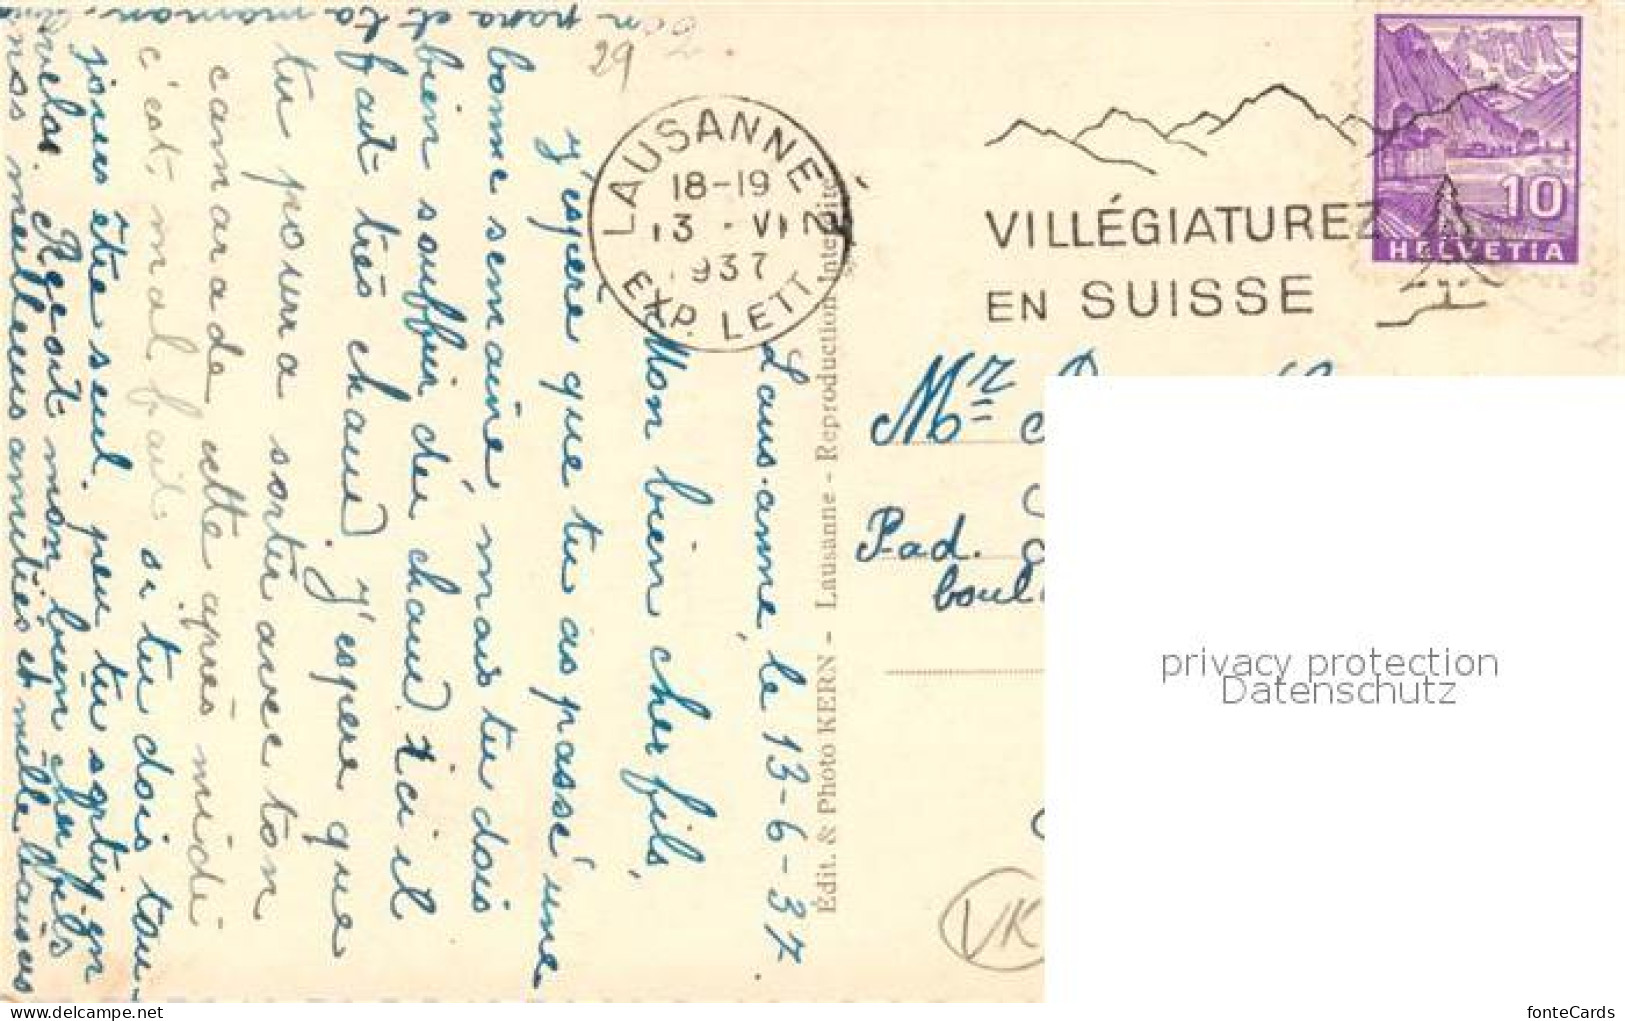 Lausanne, le 13-6-37.
Mon bien cher fils,
J'espère que tu as passé une
bonne semaine, mais tu dois
bien souffrir du chaud. Ici il
fait très chaud. J'espère que
tu pourra sortir avec ton
camarade cette après midi
c'est mal fait si tu dois tou-
jours être seul. peu tu sortir
Reçoit mon bien cher fils
nos meilleurs amitiés et mille baisers
papa et ta maman
29
LAUSANNE
18-19
13 · VI
1937
EXP. LETT.
VILLÉGIATUREZ
EN SUISSE
10
HELVETIA
Édit. & Photo KERN - Lausanne - Reproduction Interdite
Mr
Pad.
boul
VK
privacy protection
Datenschutz
www.delcampe.net
fonteCards